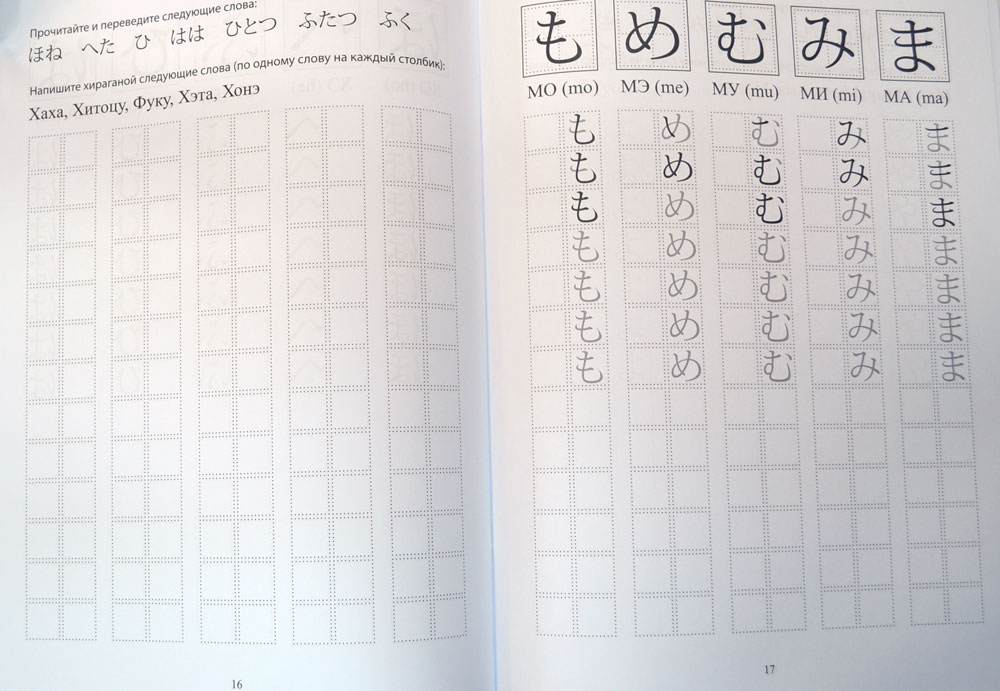 Прочитайте и переведите следующие слова:
ほね へた ひ はは ひとつ ふたつ ふく
Напишите хираганой следующие слова (по одному слову на каждый столбик):
Хаха, Хитоцу, Фуку, Хэта, Хонэ
16
も め む み ま
МО (mo) МЭ (me) МУ (mu) МИ (mi) МА (ma)
も め む み ま
も め む み ま
も め む み ま
も め む み ま
も め む み ま
も め む み ま
も め む み ま
17